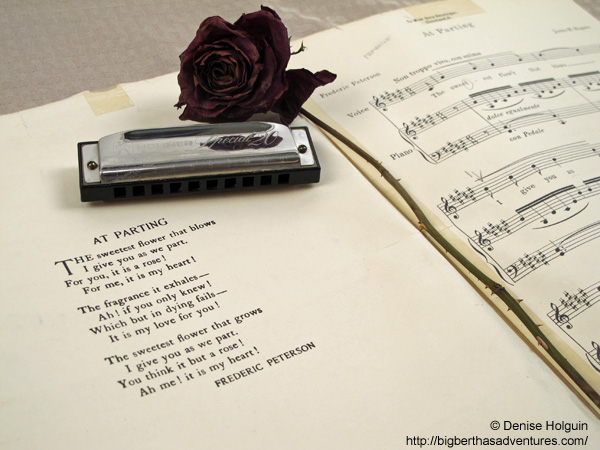 At Parting
Frederic Peterson
Non troppo vivo, con anima
Voice
The sweet
dolce egualmente
Piano
con Pedale
I give you as
Special 20
AT PARTING
THE sweetest flower that blows
I give you as we part.
For you, it is a rose!
For me, it is my heart!
The fragrance it exhales—
Ah! if you only knew!
Which but in dying fails—
It is my love for you!
The sweetest flower that grows
I give you as we part.
You think it but a rose!
Ah me! it is my heart!
FREDERIC PETERSON
© Denise Holguin
http://bigberthasadventures.com/